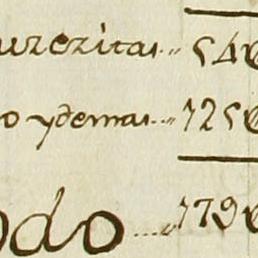 uzezitas.. 540
o ydemas... 1250
odo.... 1790